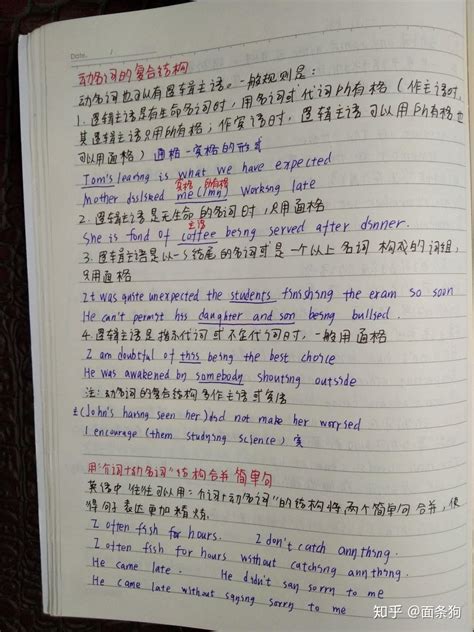 Date. /
动名词的复合结构
动名词也可以有逻辑主语。一般规则是：
1. 逻辑主语是有生命名词时，用名词或代词所有格（作主语时，
其逻辑主语只用所有格；作宾语时，逻辑主语可以用所有格也
可以用通格）通格-宾格的形式
Tom's leaving is what we have expected
宾格 所有格
Mother dislisked me (/my) working late
2. 逻辑主语是无生命的名词时，只用通格
主语
She is fond of coffee being served after dinner.
3. 逻辑主语是以-s结尾的名词或是一个以上名词构成的词组，
只用通格
It was quite unexpected the students finishing the exam so soon
He can't permit his daughter and son being bullied.
4. 逻辑主语是指示代词或不定代词时，一般用通格
I am doubtful of this being the best choice
He was awakened by somebody shouting outside
注：动名词的复合结构多作主语或宾语
主(John's having seen her) did not make her worried
I encourage (them studying science) 宾
用"介词+动名词"结构合并简单句
英语中往往可以用："介词+动名词"的结构将两个简单句合并，使
得句子表达更加精炼.
I often fish for hours. I don't catch anything.
I often fish for hours without catching anything.
He came late. He didn't say sorry to me
He came late without saying sorry to me
知乎 @面条狗